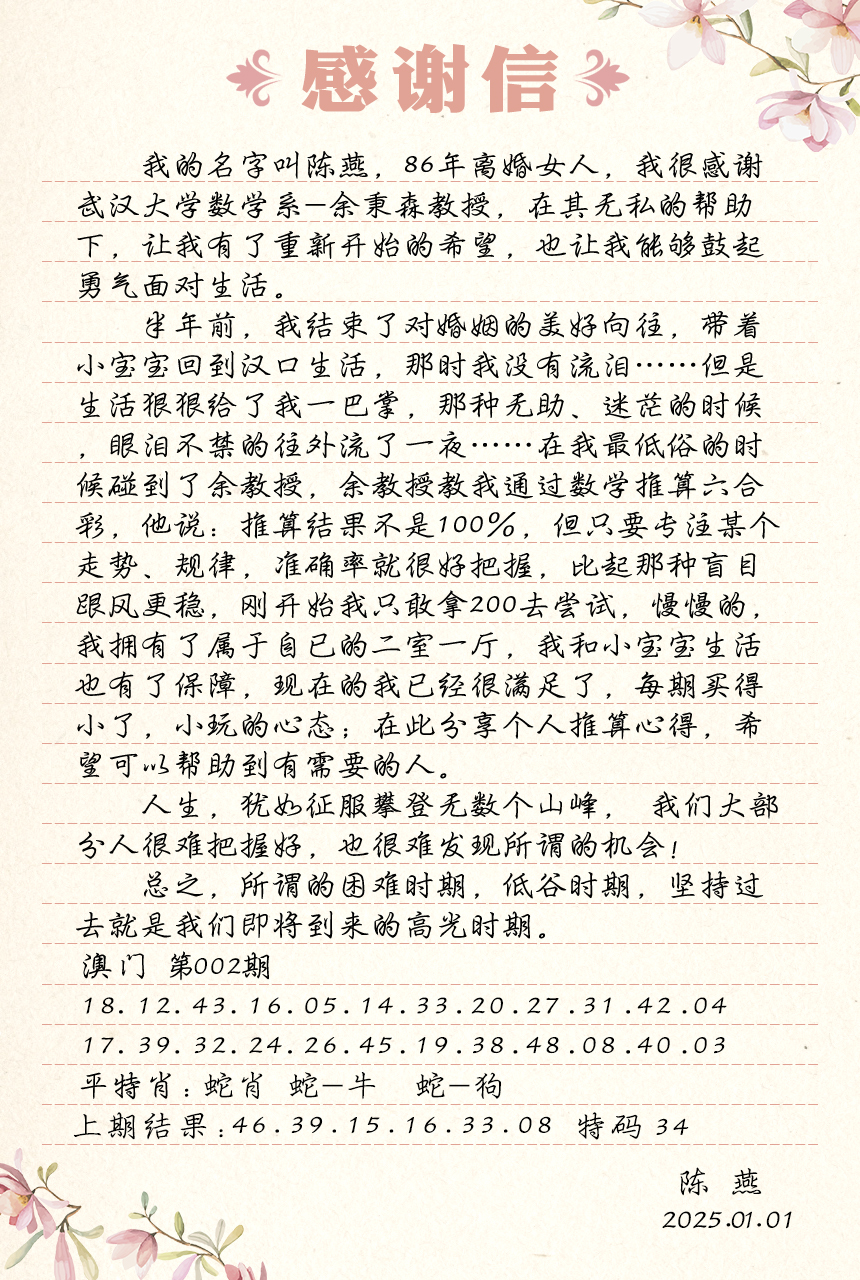 感谢信
我的名字叫陈燕，86年离婚女人，我很感谢
武汉大学数学系—余秉森教授，在其无私的帮助
下，让我有了重新开始的希望，也让我能够鼓起
勇气面对生活。
半年前，我结束了对婚姻的美好向往，带着
小宝宝回到汉口生活，那时我没有流泪……但是
生活狠狠给了我一巴掌，那种无助、迷茫的时候
，眼泪不禁的往外流了一夜……在我最低俗的时
候碰到了余教授，余教授教我通过数学推算六合
彩，他说：推算结果不是100%，但只要专注某个
走势、规律，准确率就很好把握，比起那种盲目
跟风更稳，刚开始我只敢拿200去尝试，慢慢的，
我拥有了属于自已的二室一厅，我和小宝宝生活
也有了保障，现在的我已经很满足了，每期买得
小了，小玩的心态；在此分享个人推算心得，希
望可以帮助到有需要的人。
人生，犹如征服攀登无数个山峰， 我们大部
分人很难把握好，也很难发现所谓的机会！
总之，所谓的困难时期，低谷时期，坚持过
去就是我们即将到来的高光时期。
澳门 第002期
18.12.43.16.05.14.33.20.27.31.42.04
17.39.32.24.26.45.19.38.48.08.40.03
平特肖：蛇肖 蛇—牛 蛇—狗
上期结果：46.39.15.16.33.08 特码 34
陈 燕
2025.01.01